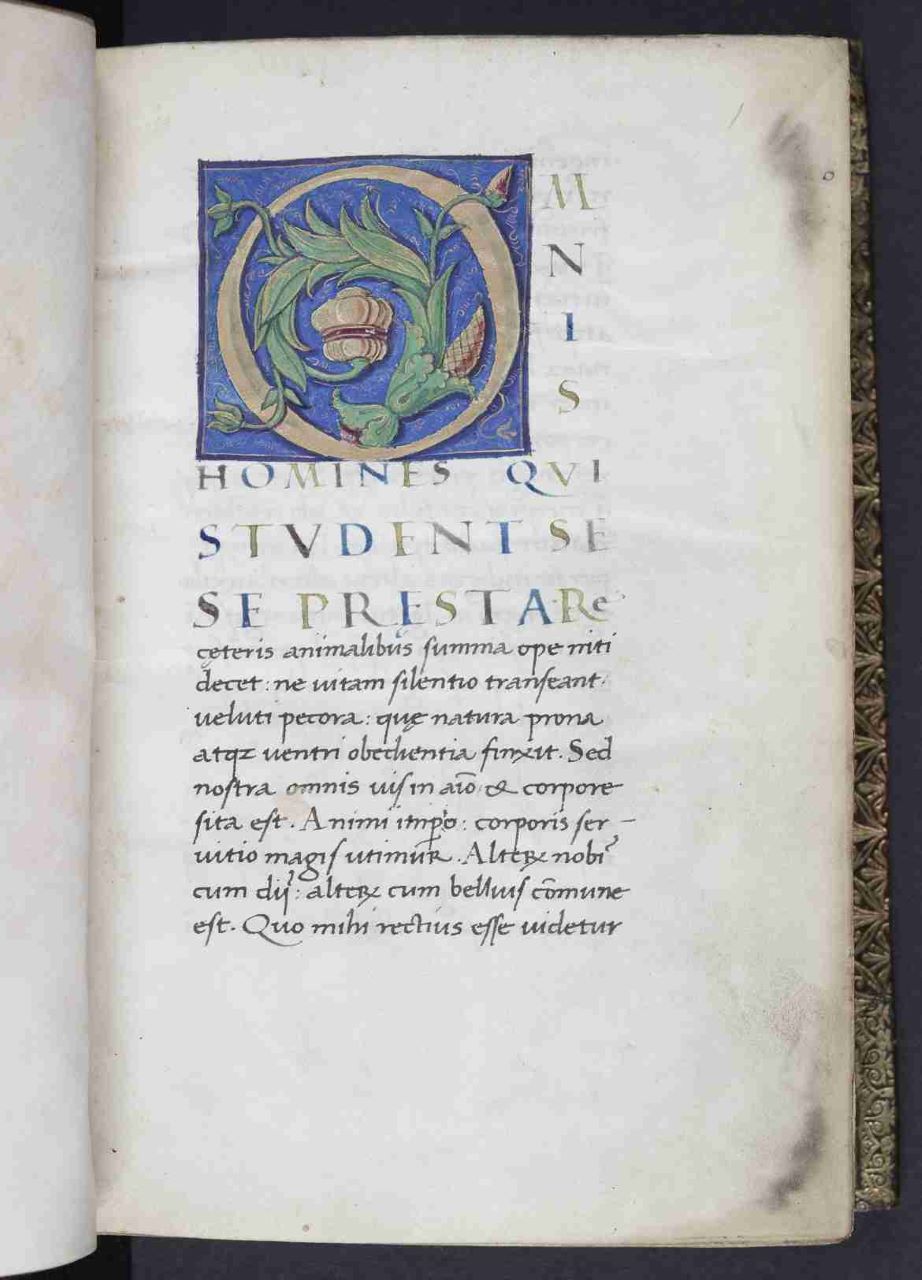 OMNIS
HOMINES QVI
STVDENT SE
SE PRESTARe
cęteris animalibus summa ope niti
decet: ne uitam silentio transeant.
ueluti pecora: quę natura prona
atqꝫ uentri obedientia finxit. Sed
nostra omnis uis in aīo & corpore
sita est. Animi imp̲o: corporis ser–
uitio magis utimur. Alteꝝ nobis
cum dij: alteꝝ cum beluis cōmune
est. Quo mihi rectius esse uidetur